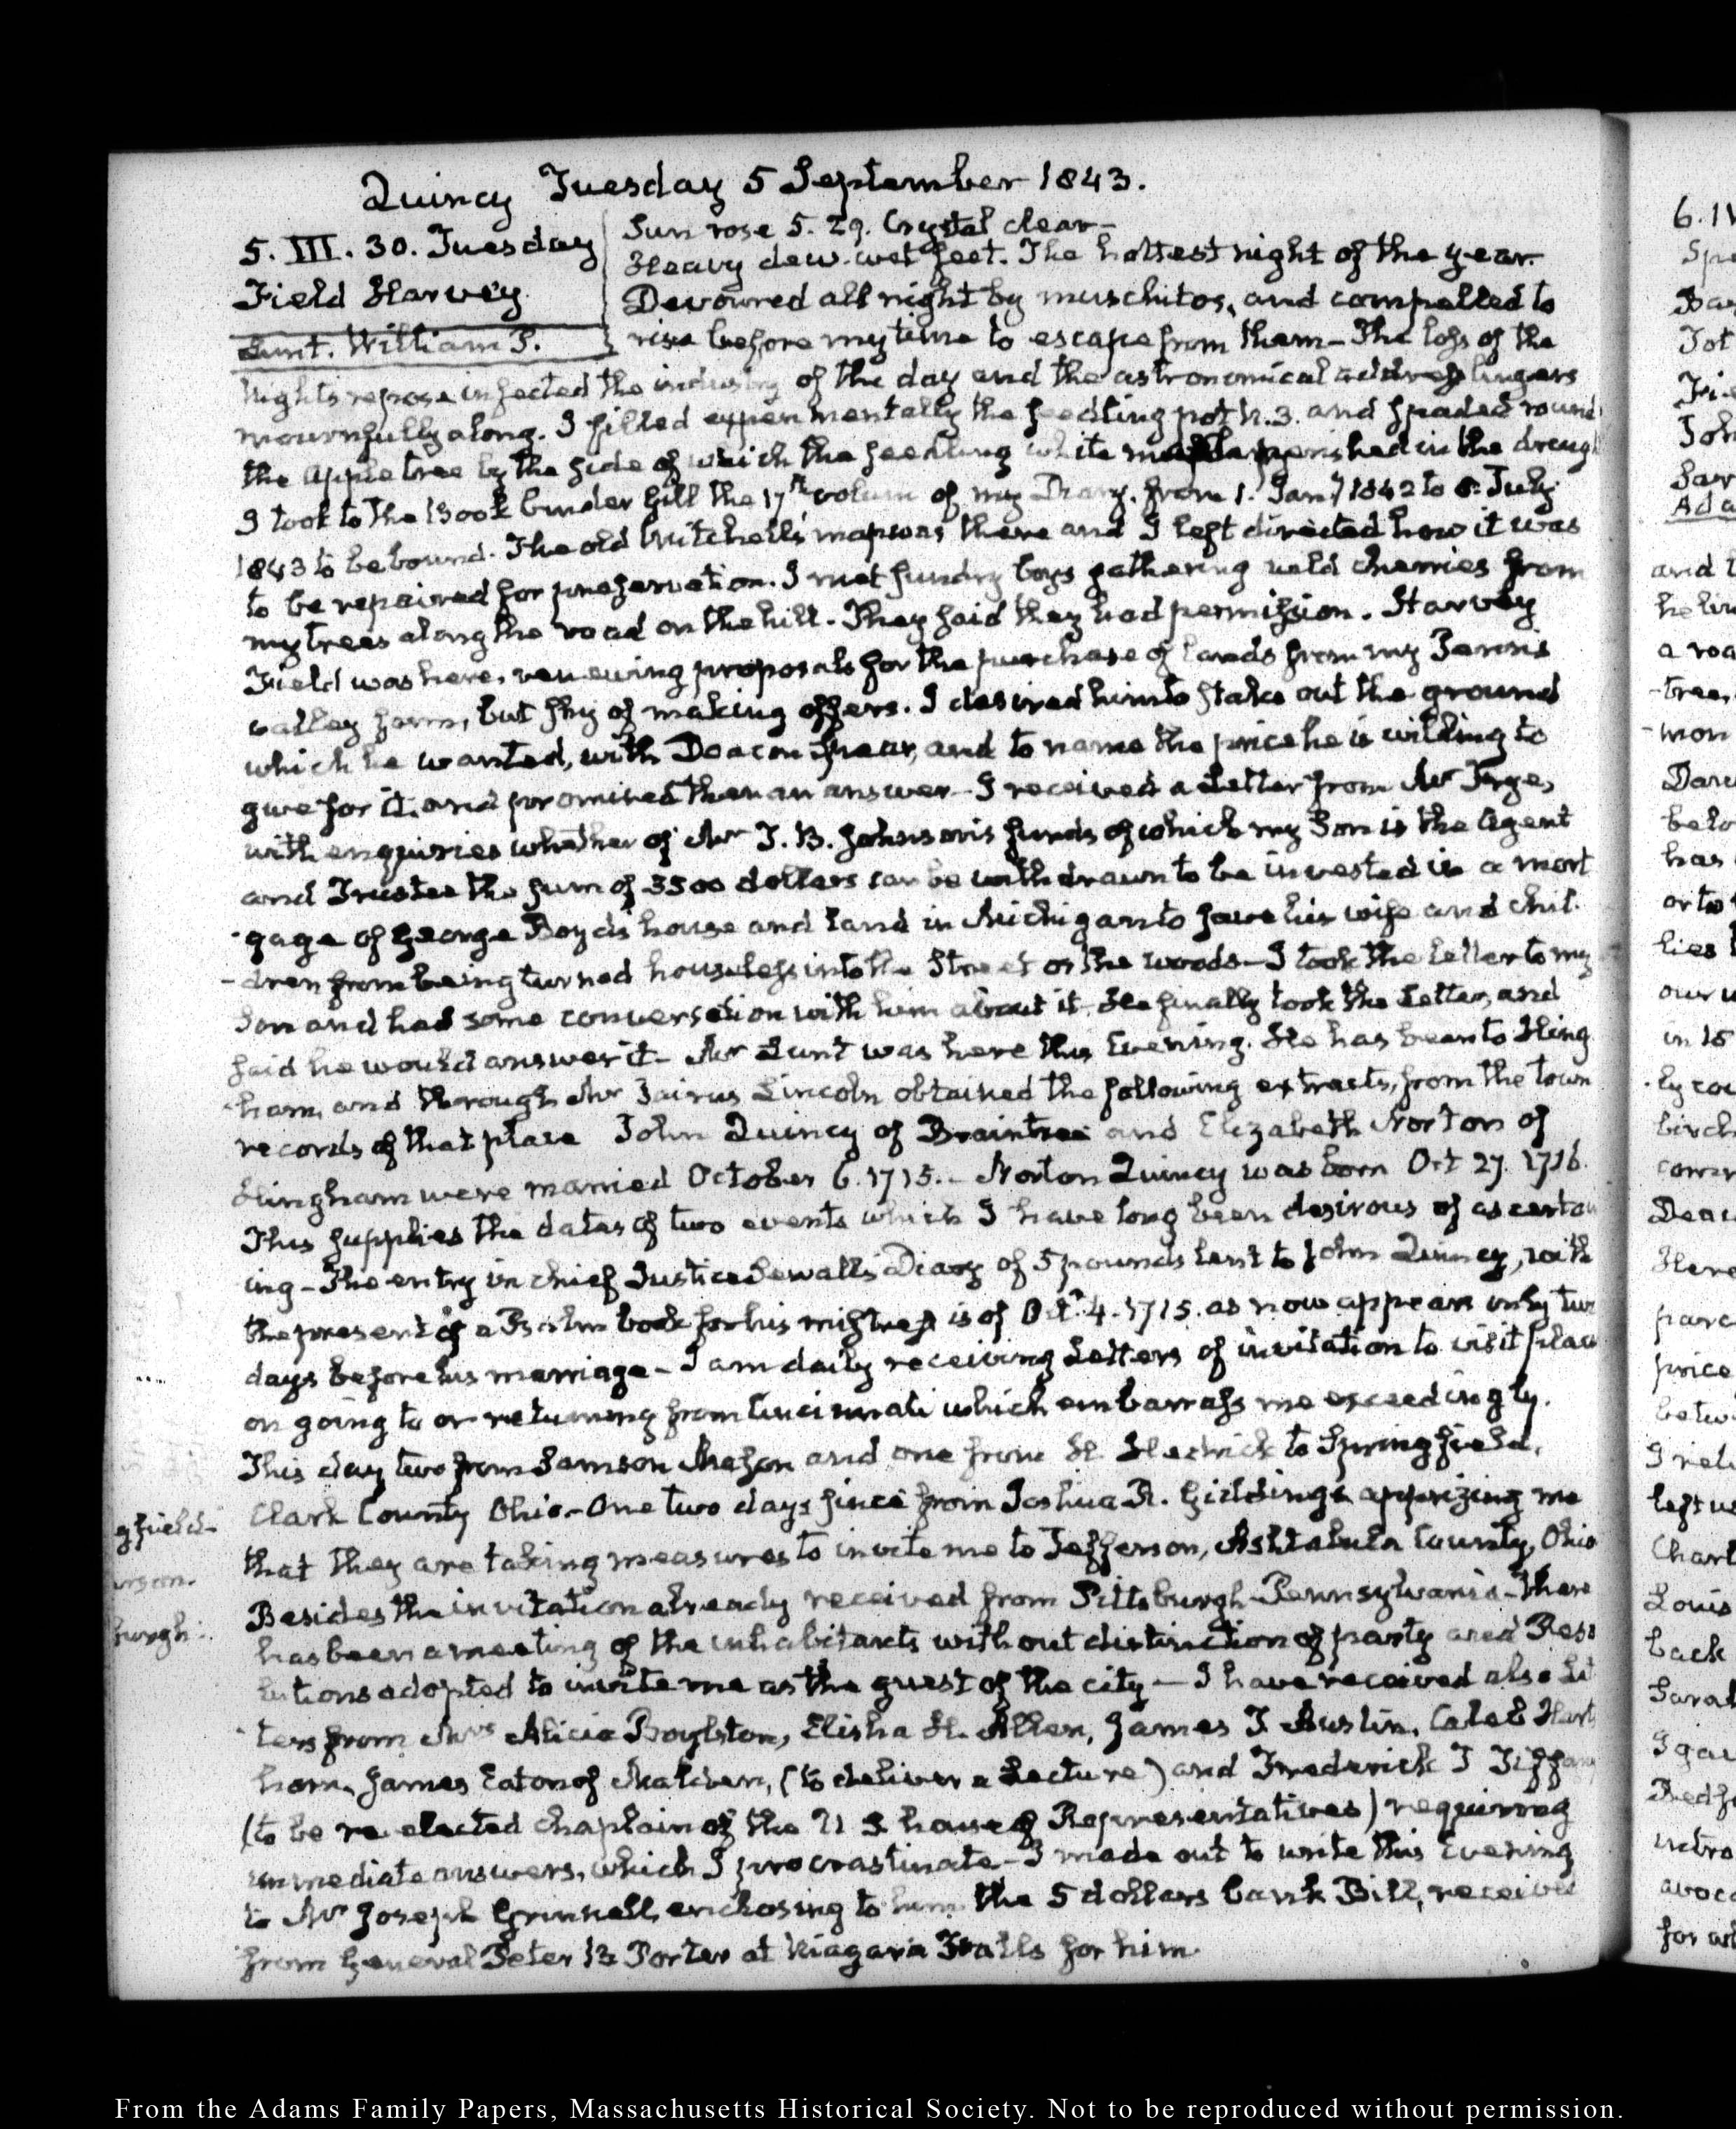 Quincy Tuesday 5 September 1843.
5. III. 30. Tuesday
Field Harvey
Lunt. William P.
Sun rose 5. 29. Crystal clear—
Heavy dew. wet feet. The hottest night of the year.
Devoured all night by muschitos, and compelled to
rise before my time to escape from them— The loss of the
Night's repose infected the industry of the day and the astronomical address lingers
mournfully along. I filled experimentally the seedling pot N. 3. and spaded round
the Apple tree by the side of which the seedling white perished in the
I took to the Book binder Gill the 17th volum of my Diary. from 1. Jany 1842 to 8. July
1843 to be bound. The old Mitchell's map was there and I left directed how it was
to be repaired for preservation. I met sundry boys gathering wild cherries from
my trees along the road on the hill. They said they had permission. Harvey
Field was here, renewing proposals for the purchase of lands from my Penn's
valley farm, but shy of making offers. I desired him to stake out the ground
which he wanted, with Deacon Spear, and to name the price he is willing to
give for it. and promised then an answer— I received a Letter from Mr Frye,
with enquiries whether of Mr T. B. Johnson's funds of which my Son is the Agent
and Trustee the sum of 3500 dollars can be withdrawn to be invested in a mort
-gage of George Boyd's house and land in Michigan to save his wife and chil-
-dren from being turned houseless into the Street or the woods— I took the letter to my
Son and had some conversation with him about it. He finally took the Letter, and
said he would answer it— Mr Lunt was here this Evening. He has been to Hing
-ham, and through Mr Jairus Lincoln obtained the following extracts, from the town
records of that place John Quincy of Braintree and Elizabeth Norton of
Hingham were married October 6. 1715.— Norton Quincy was born Oct 27. 1716.
This supplies the dates of two events which I have long been desirous of ascertain
ing— The entry in chief Justice Sewall's Diary of 5 pounds lent to John Quincy, with
the present of a Psalm book for his mistress is of Oct. 4. 1715. as now appears only two
days before his marriage— I am daily receiving Letters of invitation to visit places
on going to or returning from Cincinnati which embarrass me exceedingly.
This day two from Samson Mason and one from to Springfield,
Clark County Ohio.— One two days since from Joshua R. Giddings apprizing me
that they are taking measures to invite me to Jefferson, Ashtabula County, Ohio
Besides the invitation already received from Pittsburgh Pennsylvania— there
has been a meeting of the inhabitants without distinction of party and Reso
lutions adopted to invite me as the guest of the city— I have received also Let
-ters from Mrs Alicia Boylston, Elisha H. Allen, James T Austin, Caleb Harts
horn, James Eaton of Malden, (to deliver a Lecture) and Frederick T Tiffany
(to be re elected chaplain of the U S house of Representatives) requiring
immediate answers, which I procrastinate— I made out to write this Evening
to Mr Joseph Grinnell, enclosing to him the 5 dollars bank Bill, received
from General Peter B Porter at Niagara Falls for him.
gfield-
burgh.
6. IV
Spe
Jot
Joh
Sar
Ada
and
a roa
-tree,
-mon
has
our w
in 15
birch
Deac
price
left us
Charl
Louis
back
Sarah
for
From the Adams Family Papers, Massachusetts Historical Society. Not to be reproduced without permission.